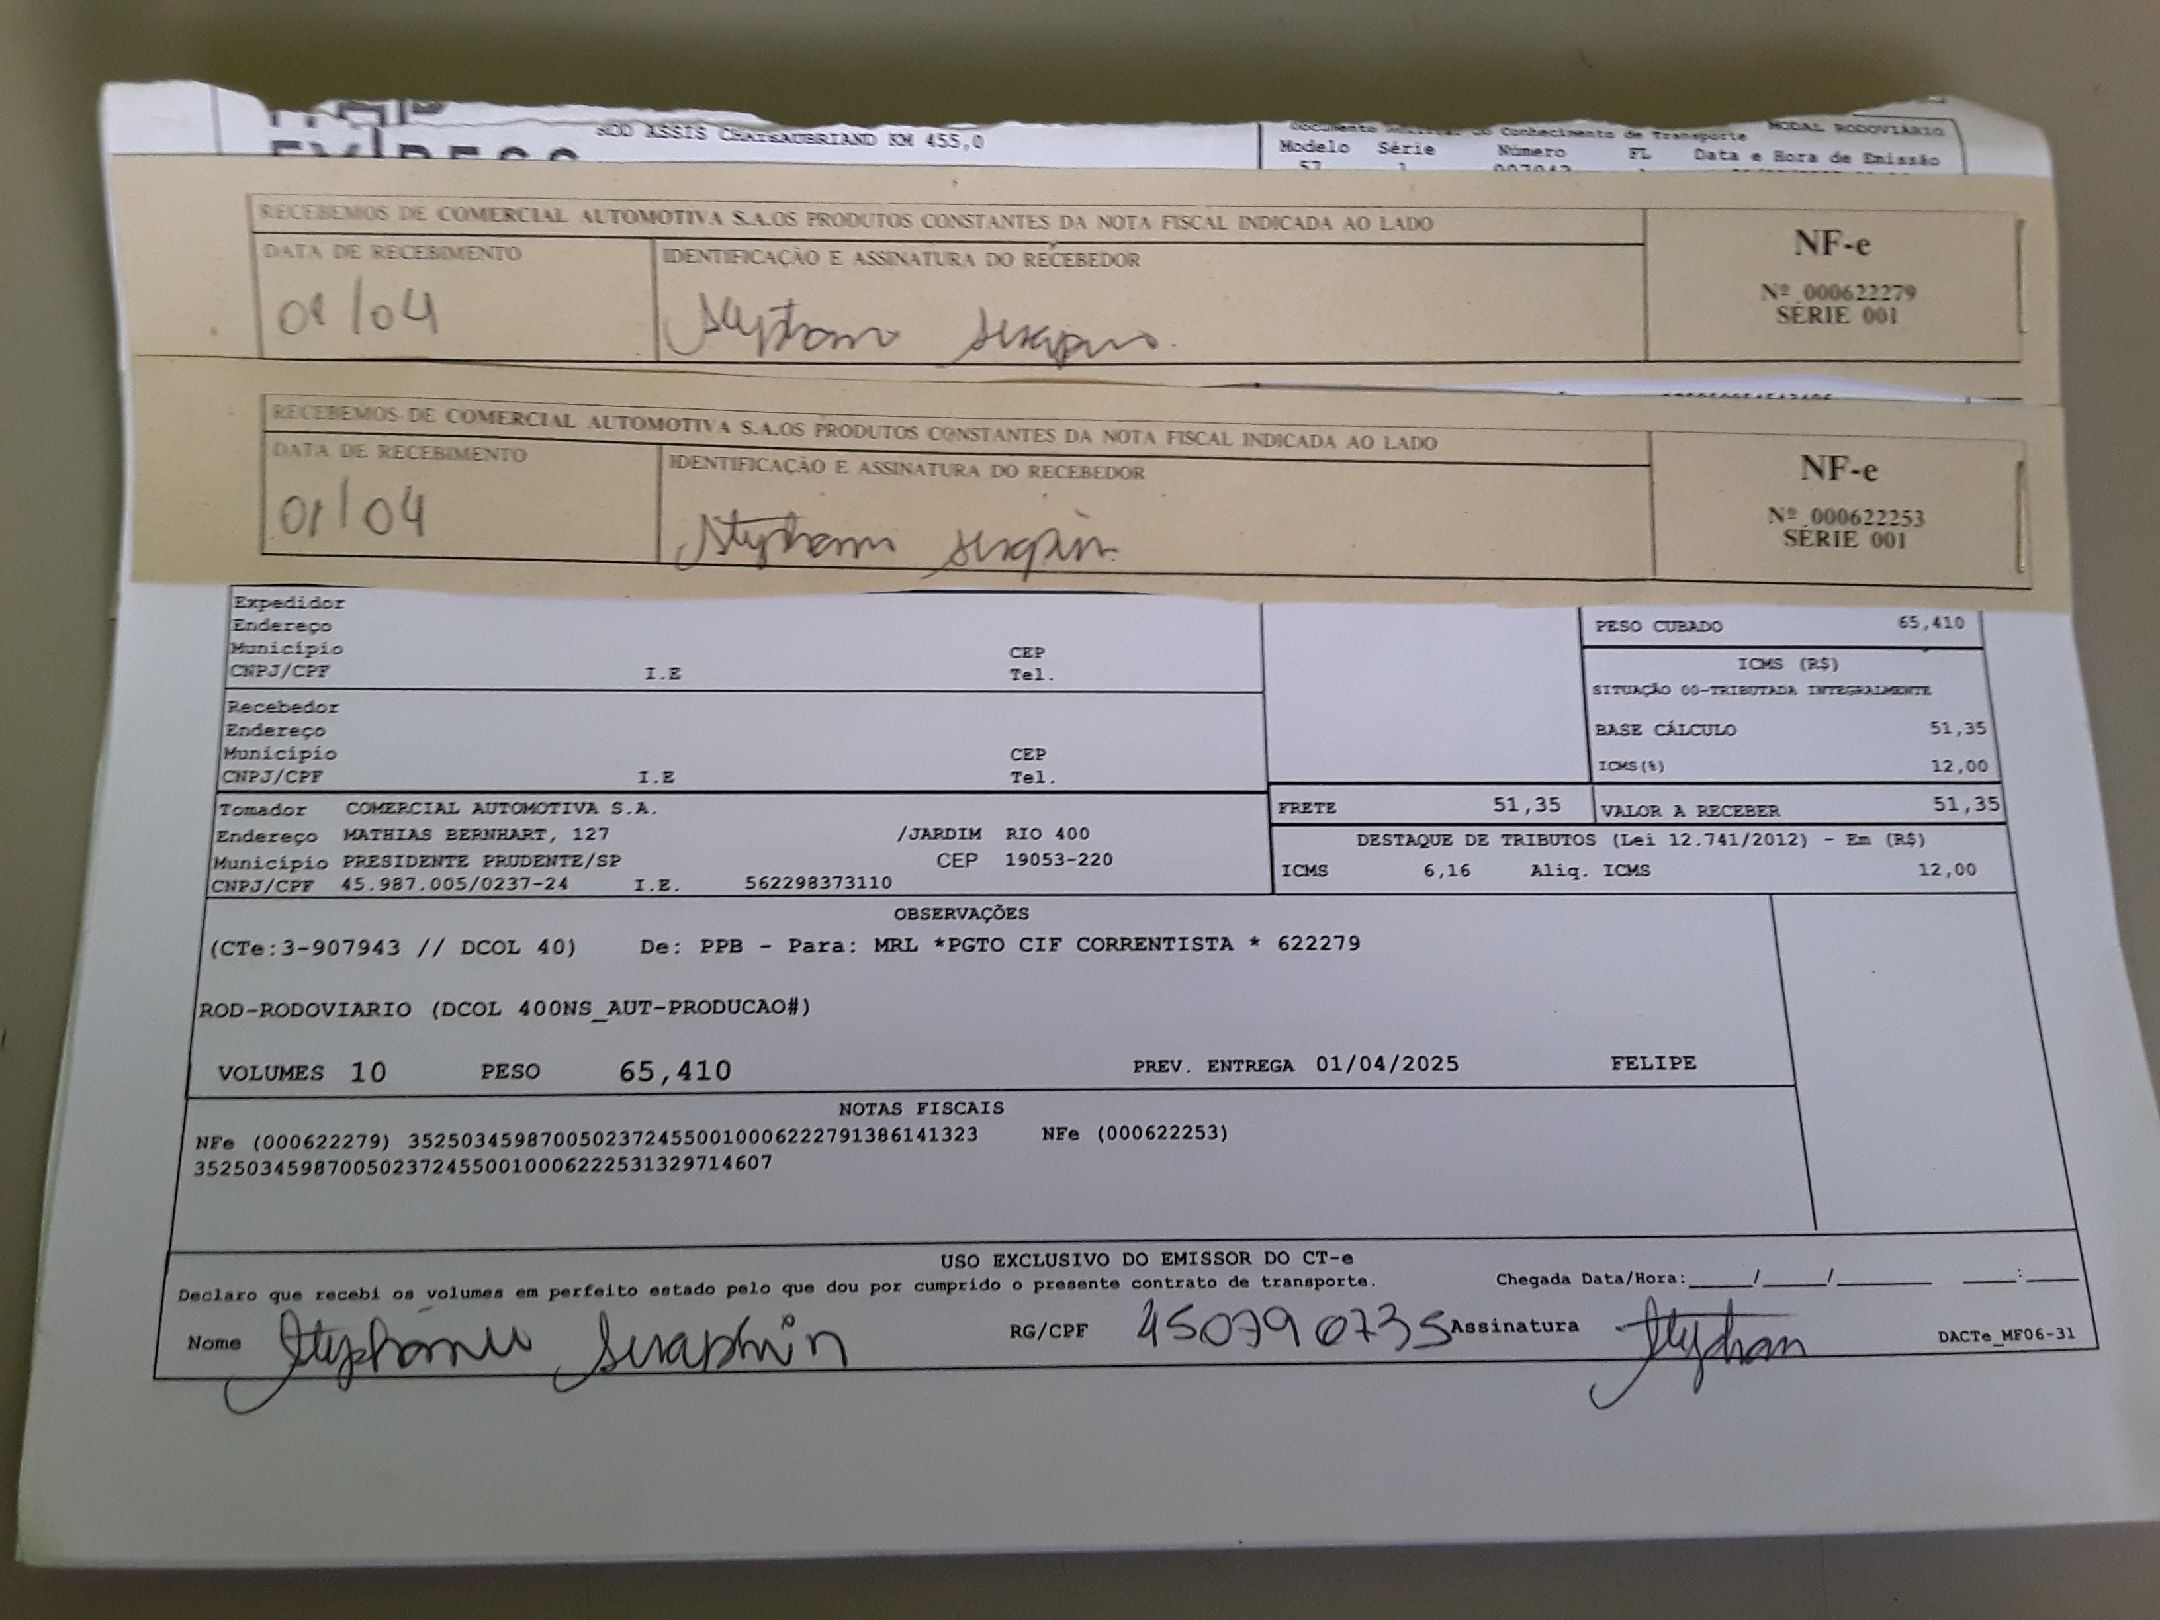 ROD ASSIS CHATEAUBRIAND KM 455,0
Documento Auxiliar do Conhecimento de Transporte MODAL RODOVIÁRIO
Modelo Série Número FL Data e Hora de Emissão
57 1
RECEBEMOS DE COMERCIAL AUTOMOTIVA S.A.OS PRODUTOS CONSTANTES DA NOTA FISCAL INDICADA AO LADO
NF-e
DATA DE RECEBIMENTO IDENTIFICAÇÃO E ASSINATURA DO RECEBEDOR
Nº 000622279
01/04
SÉRIE 001
RECEBEMOS DE COMERCIAL AUTOMOTIVA S.A.OS PRODUTOS CONSTANTES DA NOTA FISCAL INDICADA AO LADO
NF-e
DATA DE RECEBIMENTO IDENTIFICAÇÃO E ASSINATURA DO RECEBEDOR
Nº 000622253
01/04
SÉRIE 001
Expedidor
Endereço
PESO CUBADO 65,410
Município CEP
CNPJ/CPF I.E Tel.
ICMS (R$)
SITUAÇÃO 00-TRIBUTADA INTEGRALMENTE
Recebedor
Endereço
BASE CÁLCULO 51,35
Município CEP
ICMS(%) 12,00
CNPJ/CPF I.E Tel.
Tomador COMERCIAL AUTOMOTIVA S.A.
FRETE 51,35 VALOR A RECEBER 51,35
Endereço MATHIAS BERNHART, 127 /JARDIM RIO 400
DESTAQUE DE TRIBUTOS (Lei 12.741/2012) - Em (R$)
Município PRESIDENTE PRUDENTE/SP CEP 19053-220
ICMS 6,16 Aliq. ICMS 12,00
CNPJ/CPF 45.987.005/0237-24 I.E. 562298373110
OBSERVAÇÕES
(CTe:3-907943 // DCOL 40) De: PPB - Para: MRL *PGTO CIF CORRENTISTA * 622279
ROD-RODOVIARIO (DCOL 400NS_AUT-PRODUCAO#)
VOLUMES 10 PESO 65,410 PREV. ENTREGA 01/04/2025 FELIPE
NOTAS FISCAIS
NFe (000622279) 35250345987005023724550010006222791386141323 NFe (000622253)
35250345987005023724550010006222531329714607
USO EXCLUSIVO DO EMISSOR DO CT-e
Declaro que recebi os volumes em perfeito estado pelo que dou por cumprido o presente contrato de transporte. Chegada Data/Hora:____/____/______ ___:___
Nome Stephanie Seraphin RG/CPF 450790735 Assinatura DACTe_MF06-31